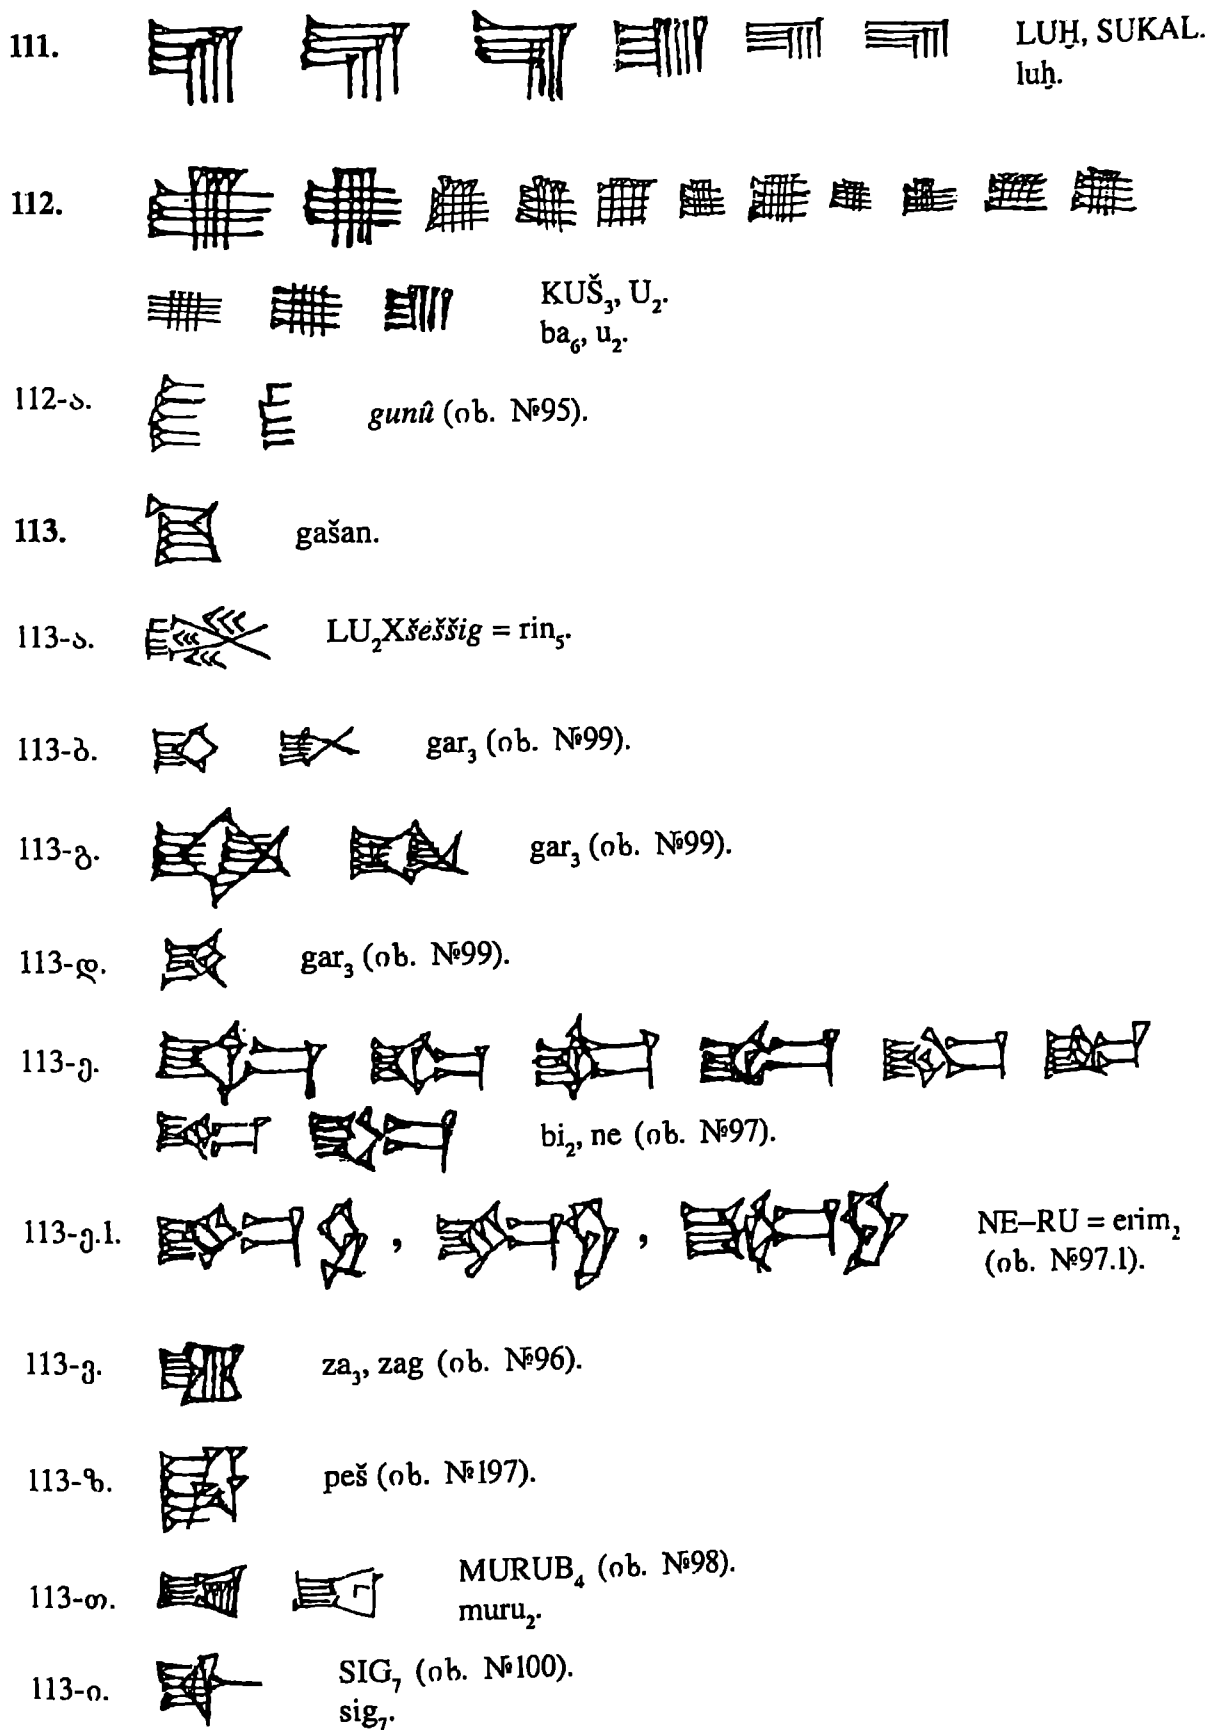 111. LUḪ, SUKAL.
luḫ.
112.
KUŠ₃, U₂.
ba₆, u₂.
112-ა. gunû (იხ. №95).
113. gašan.
113-ა. LU₂Xšeššig = rin₅.
113-ბ. gar₃ (იხ. №99).
113-გ. gar₃ (იხ. №99).
113-დ. gar₃ (იხ. №99).
113-ე.
bi₂, ne (იხ. №97).
113-ე.1. , , NE–RU = erim₂
(იხ. №97.1).
113-ვ. za₃, zag (იხ. №96).
113-ზ. peš (იხ. №197).
113-თ. MURUB₄ (იხ. №98).
muru₂.
113-ი. SIG₇ (იხ. №100).
sig₇.